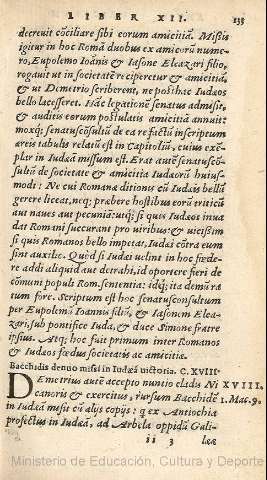 LIBER XII. 135
decreuit cõciliare sibi eorum amicitiã. Missis
igitur in hoc Romã duobus ex amicorũ nume-
ro, Eupolemo Ioãnis & Iasone Eleazari filio,
rogauit ut in societatẽ reciperetur & amicitiã,
& ut Demetrio scriberent, ne posthac Iudæos
bello lacesseret. Hãc legationẽ senatus admisit,
& auditis eorum postulatis amicitiã annuit:
moxq; senatuscõsultũ de ea re factũ inscriptum
æreis tabulis relatũ est in Capitoliũ, cuius exẽ-
plar in Iudæã missum est. Erat autẽ senatuscõ-
sultũ de societate & amicitia Iudæorũ huius-
modi: Ne cui Romanæ ditionis cũ Iudæis bellũ
gerere liceat, neq; præbere hostibus eorũ triticũ
aut naues aut pecuniã: utq; si quis Iudæos inua
dat Romani succurrant pro uiribus: & uicißim
si quis Romanos bello impetat, Iudæi cõtra eum
sint auxilio. Quòd si Iudæi uelint in hoc fœde-
re addi aliquid aut detrahi, id oportere fieri de
cõmuni populi Rom. sententia: idq; ita demũ ra
tum fore. Scriptum est hoc senatusconsultum
per Eupolemũ Ioannis filiũ, & Iasonem Elea-
zari, sub pontifice Iuda, & duce Simone fratre
ipsius. Atq; hoc fuit primum inter Romanos
& Iudæos fœdus societatis ac amicitiæ.
Bacchidis denuo missi in Iudæã uictoria. C. XVIII.
DEmetrius autẽ accepto nuntio cladis Ni XVIII.
canoris & exercitus, rursum Bacchidẽ 1. Mac. 9.
in Iudæã misit cũ alijs copijs: q ex Antiochia
profectus in Iudæã, ad Arbela oppidũ Gali-
ii 3 lææ
Ministerio de Educación, Cultura y Deporte